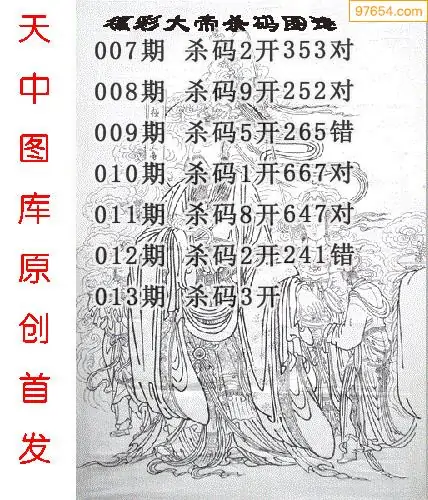 97654.com
福彩大帝杀码图谜
007期 杀码2开353对
008期 杀码9开252对
009期 杀码5开265错
010期 杀码1开667对
011期 杀码8开647对
012期 杀码2开241错
013期 杀码3开
天中图库原创首发